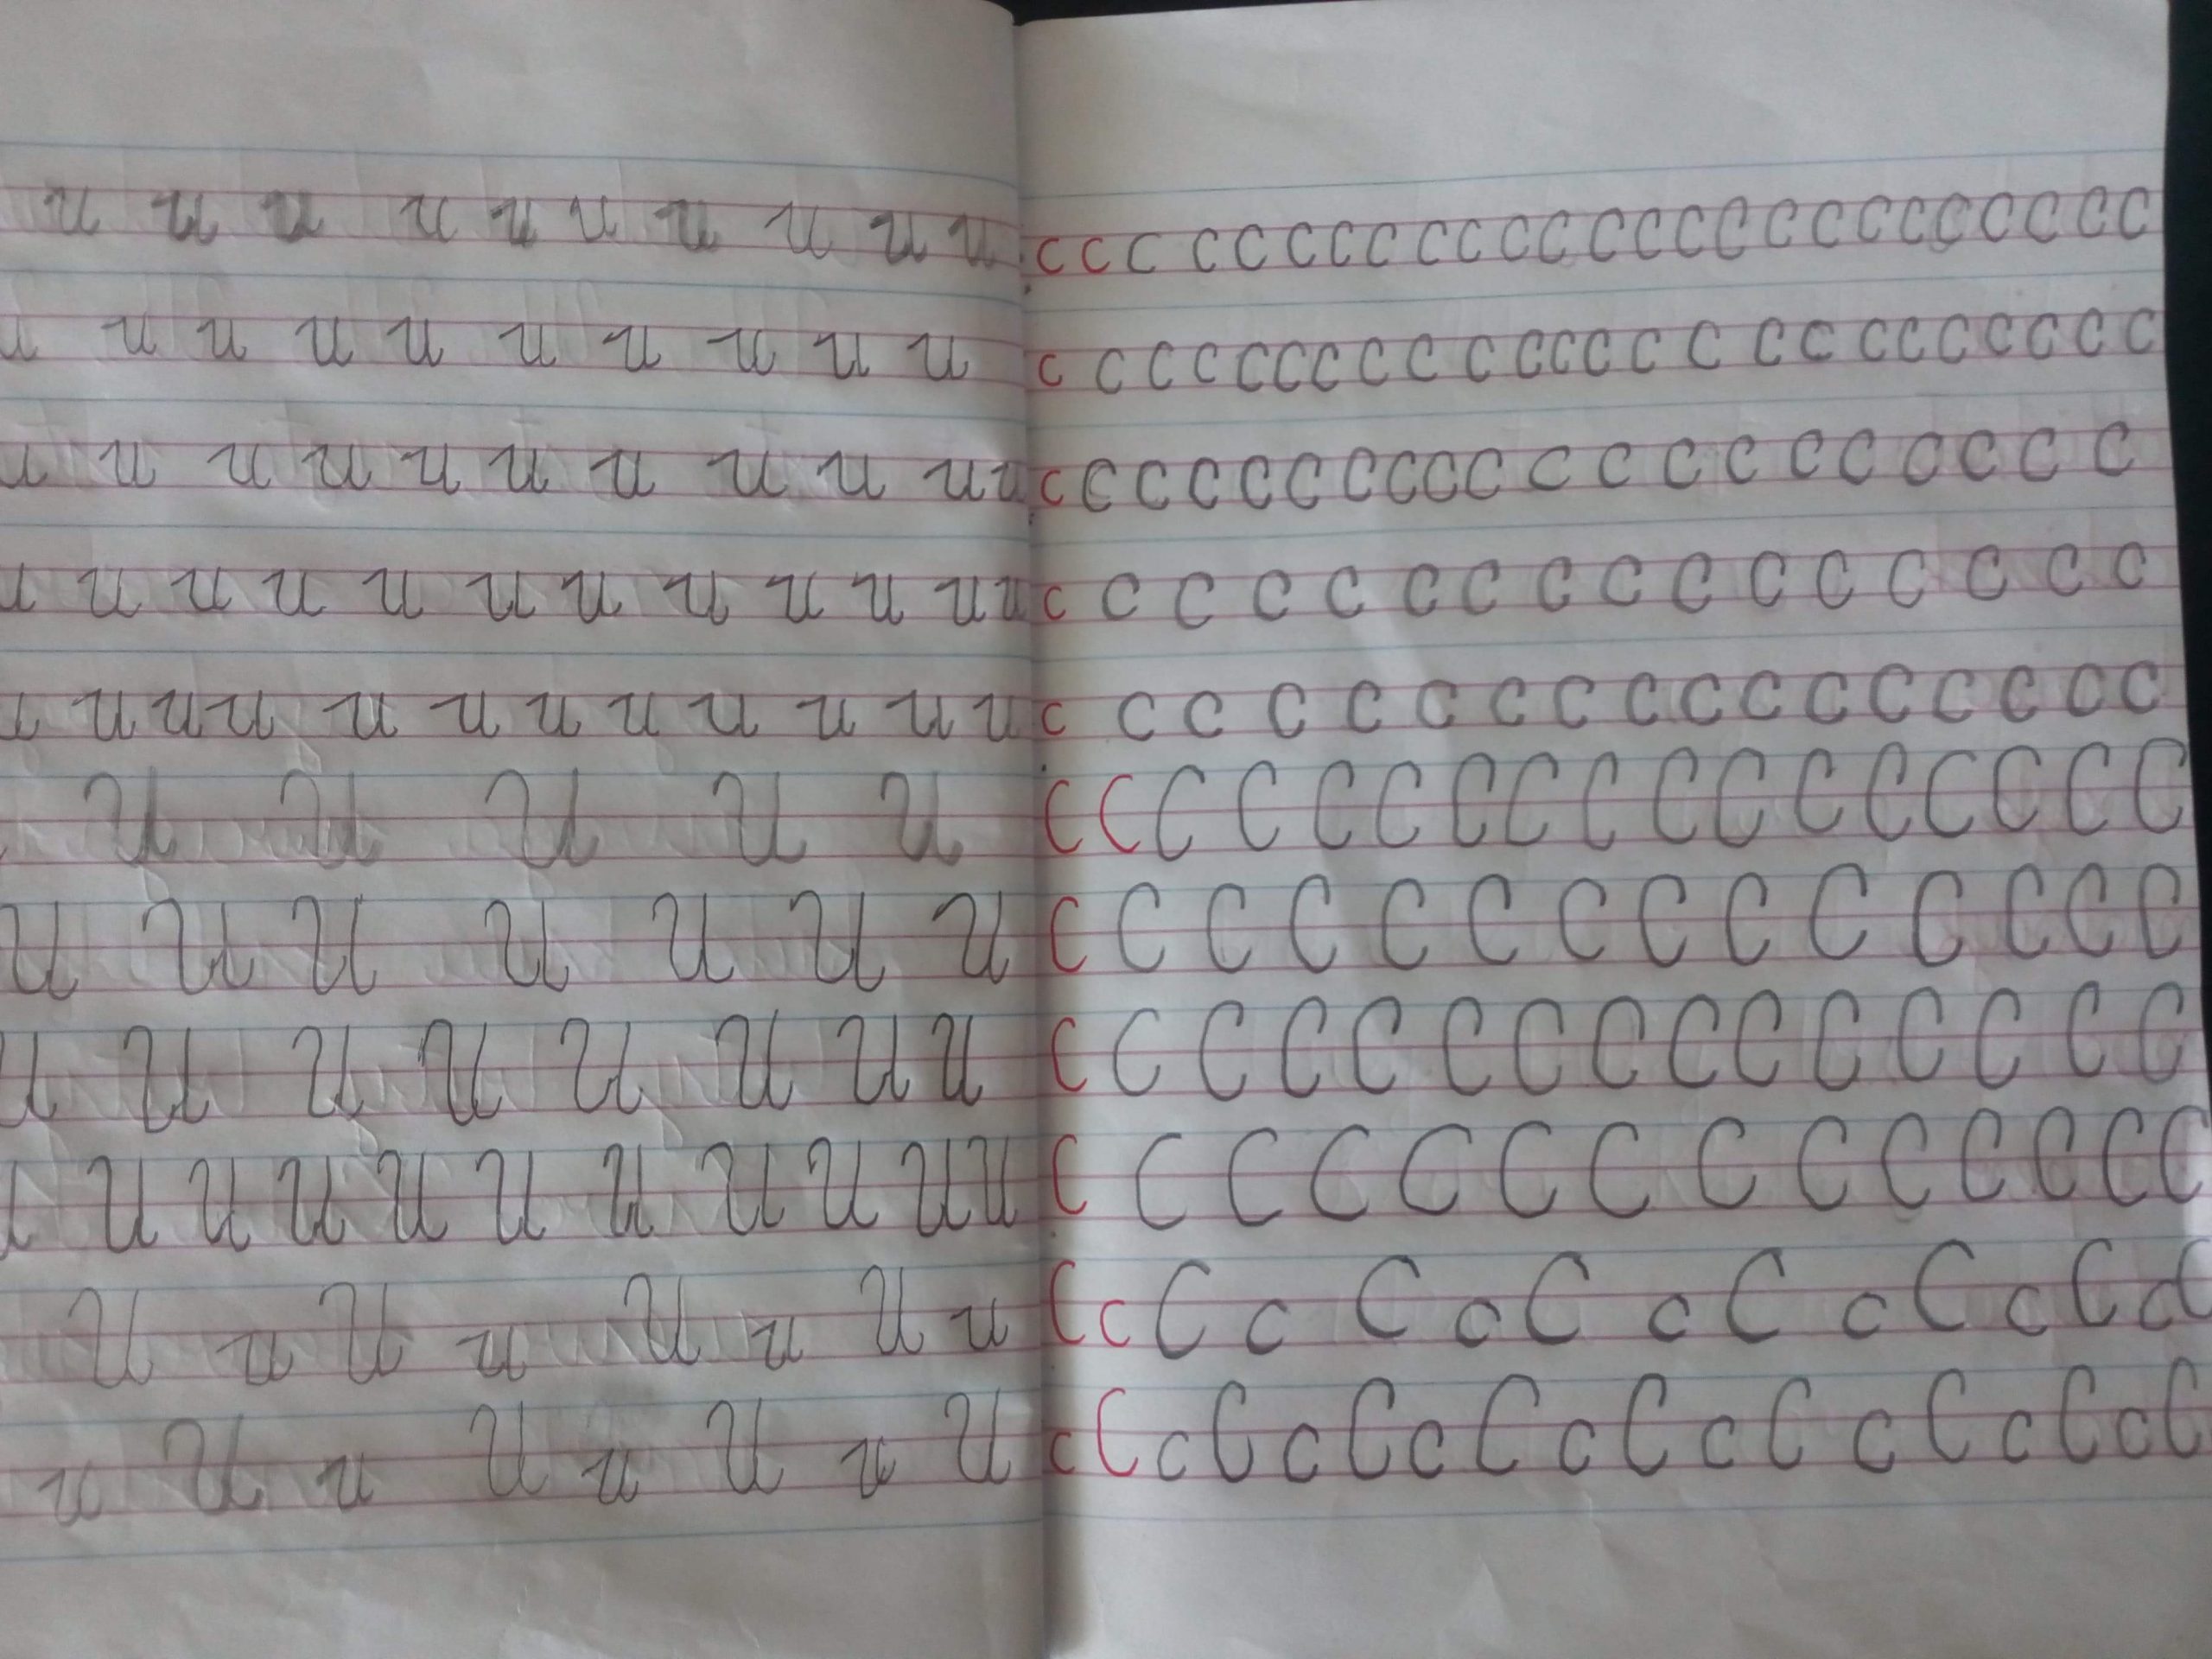 u u u u u u u u u u
u u u u u u u u u u
u u u u u u u u u u u
u u u u u u u u u u u u
u u u u u u u u u u u u u
U U U U U
U U U U U U U
U U U U U U U U
U U U U U U U U U U U
U u U u U u U u
u U u U u U u U
c c c c c c c c c c c c c c c c c c c c c c c c
c c c c c c c c c c c c c c c c c c c c c c c c
c c c c c c c c c c c c c c c c c c c c c
c c c c c c c c c c c c c c c c
c c c c c c c c c c c c c c c c c
C C C C C C C C C C C C C C C C
C C C C C C C C C C C C C C
C C C C C C C C C C C C C C C
C C C C C C C C C C C C C C
C c C c C c C c C c C c C c C
c C c C c C c C c C c C c C c C c C